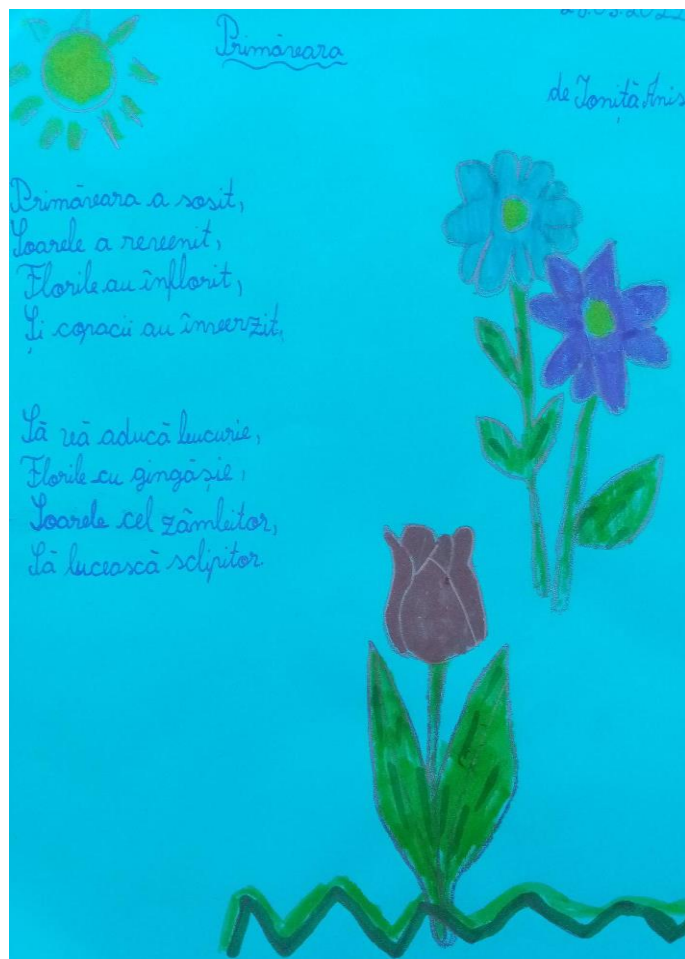 Primăvara
de Ioniță Anis
Primăvara a sosit,
Soarele a revenit,
Florile au înflorit,
Și copacii au înverzit,
Să vă aducă bucurie,
Florile cu gingășie,
Soarele cel zâmbitor,
Să lucească sclipitor.